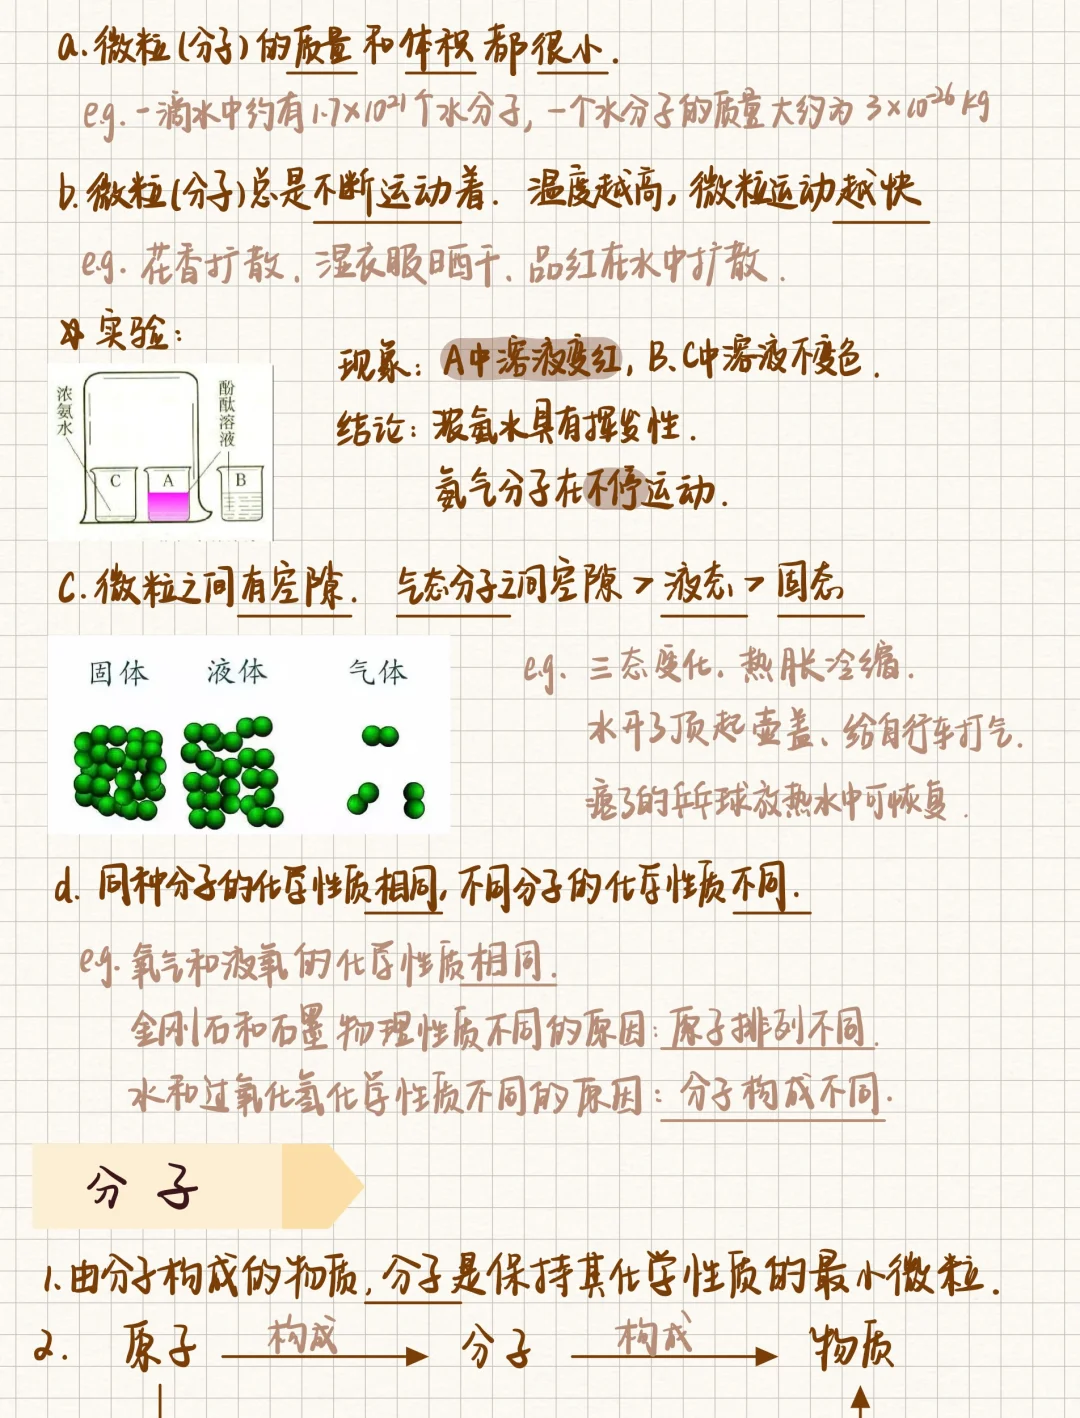 a.微粒(分子)的质量和体积都很小.
e.g.一滴水中约有1.7×10²¹个水分子,一个水分子的质量大约为3×10⁻²⁶kg
b.微粒(分子)总是不断运动着. 温度越高,微粒运动越快
e.g.花香扩散.湿衣服晒干.品红在水中扩散.
☆实验:
现象:A中溶液变红,B、C中溶液不变色.
结论:浓氨水具有挥发性.
氨气分子在不停运动.
浓氨水
酚酞溶液
C A B
C.微粒之间有空隙. 气态分子之间空隙>液态>固态
固体 液体 气体
e.g.三态变化.热胀冷缩.
水开了顶起壶盖、给自行车打气.
瘪了的乒乓球放热水中可恢复.
d.同种分子的化学性质相同,不同分子的化学性质不同.
e.g.氧气和液氧的化学性质相同.
金刚石和石墨物理性质不同的原因:原子排列不同.
水和过氧化氢化学性质不同的原因:分子构成不同.
分子
1.由分子构成的物质,分子是保持其化学性质的最小微粒.
2. 原子 构成 分子 构成 物质